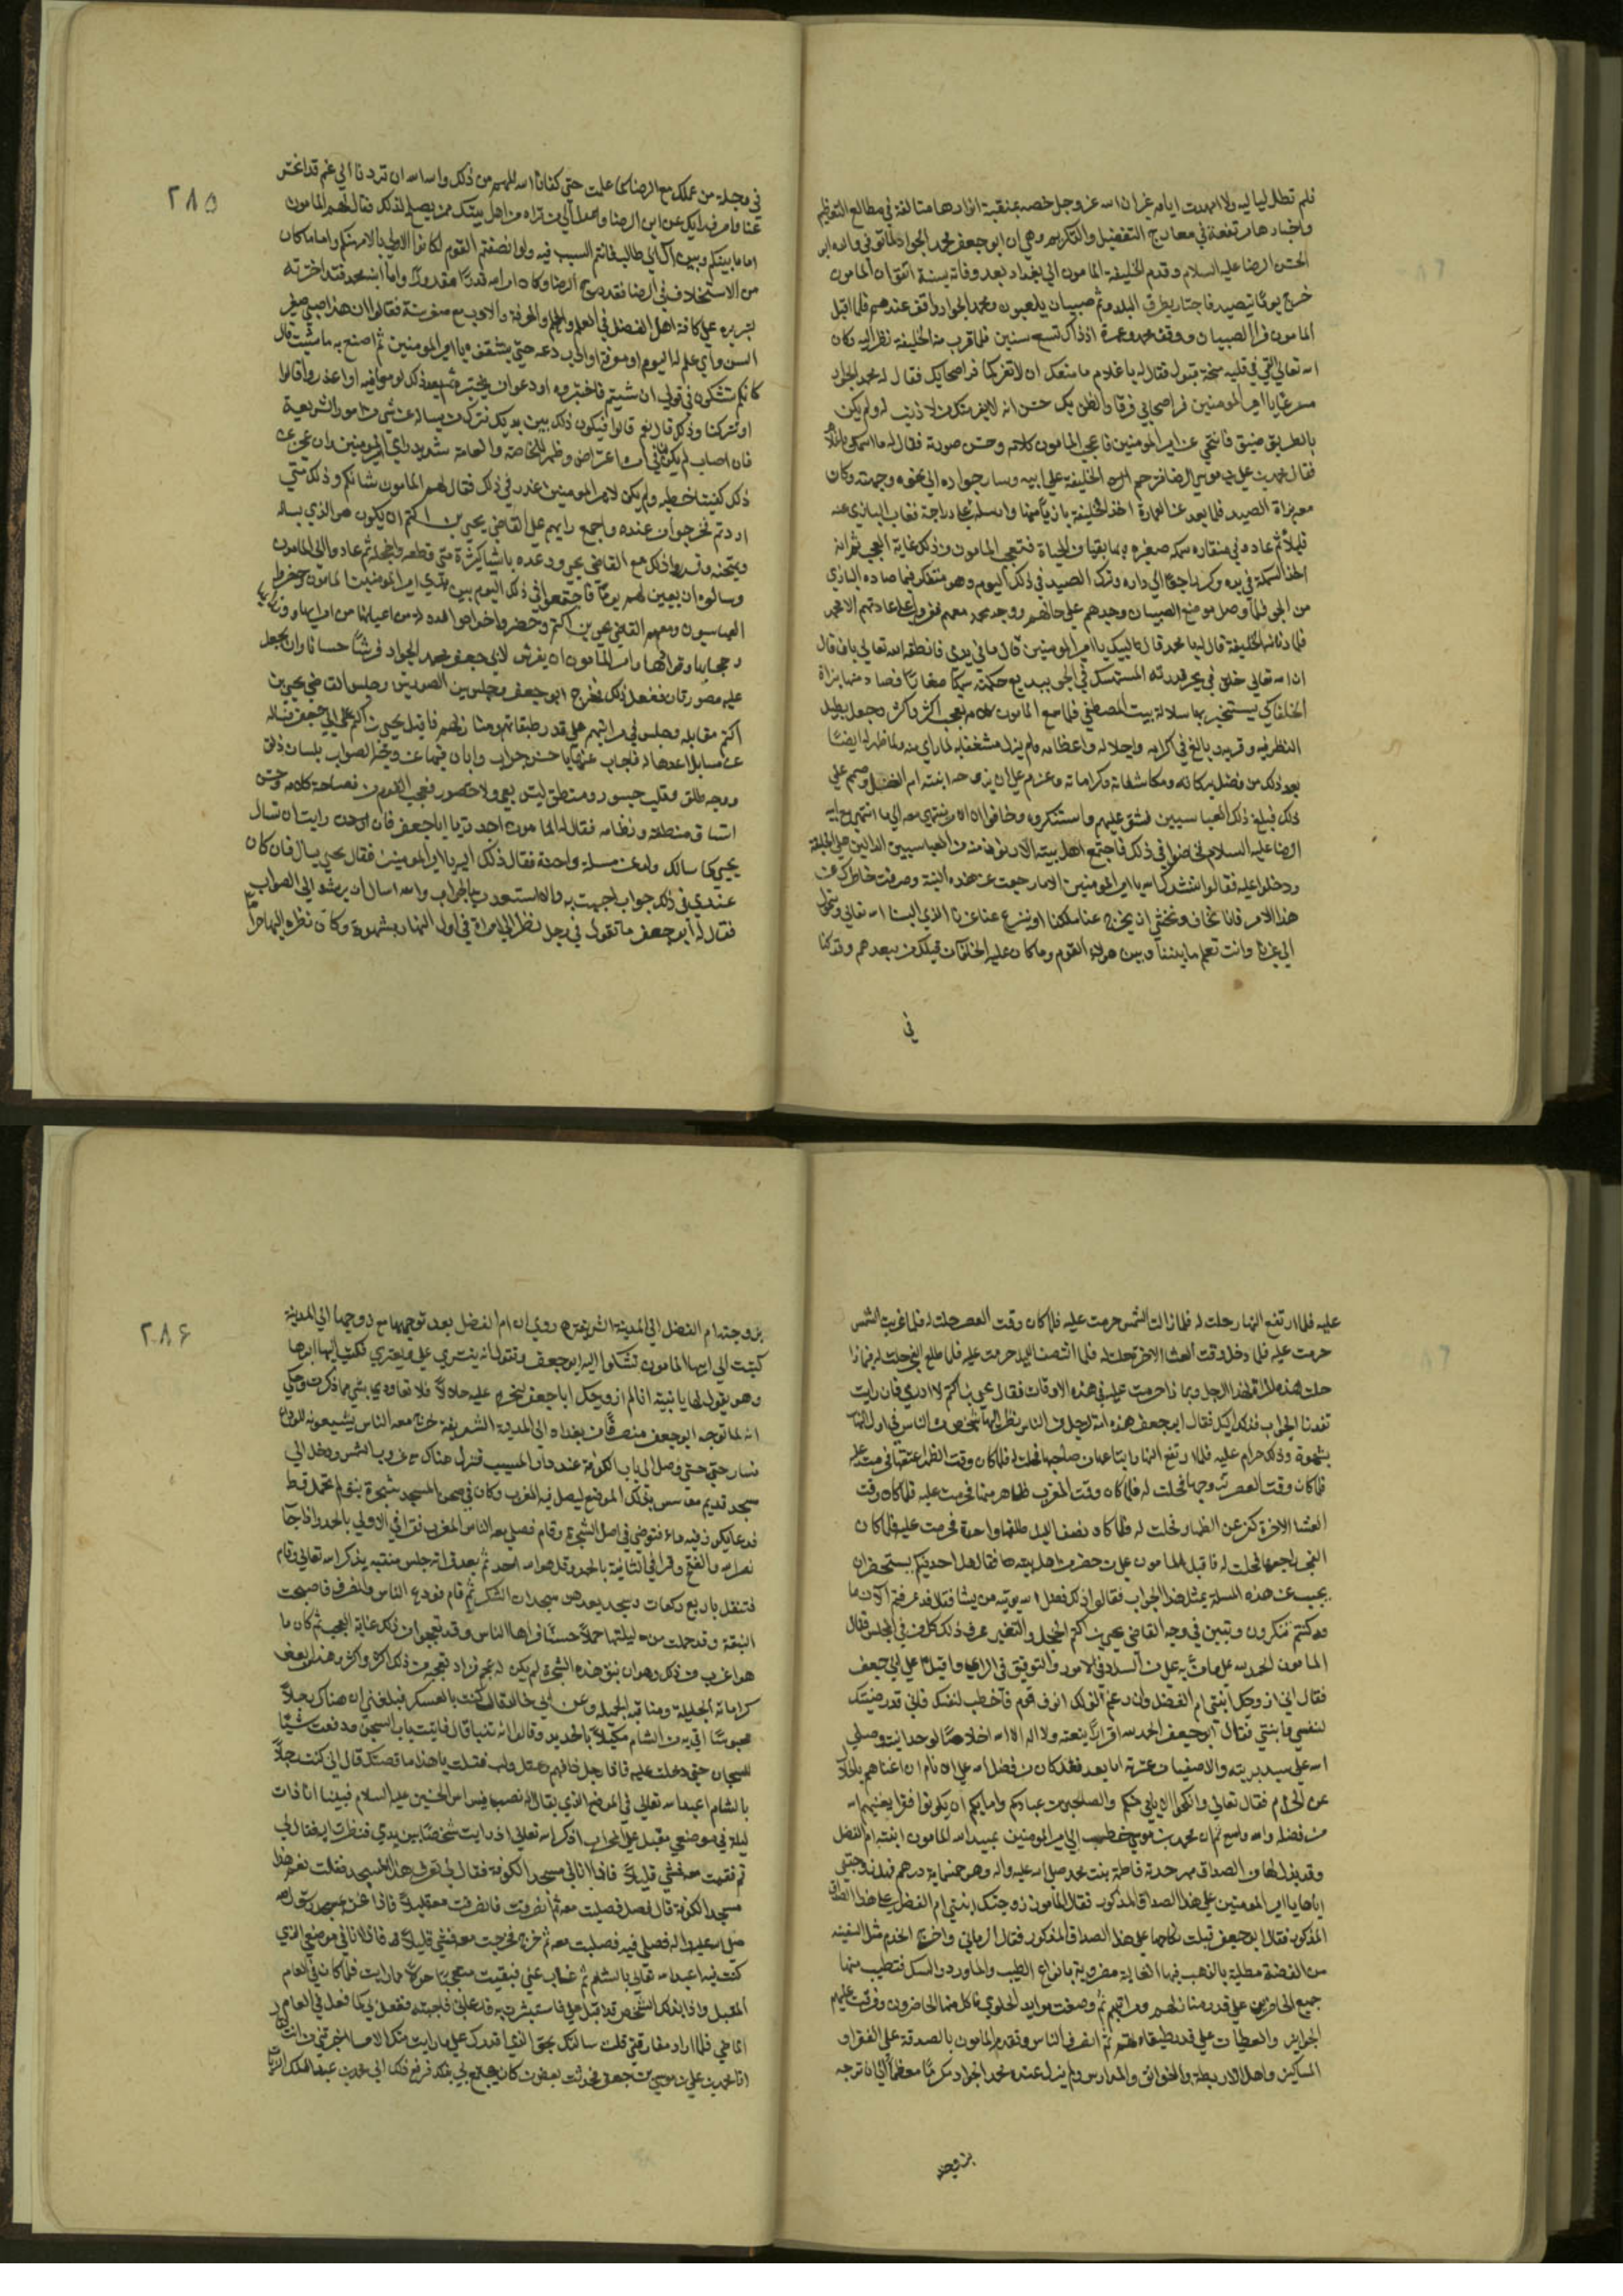 فلم تطل لياليه ولا امتدت ايامه غير ان الله عز وجل خصه بمنقبة انوارها متالقة في مطالع التعظيم
واخبارها مرتفعة في معارج التفضيل والتكريم وهي ان ابو جعفر محمد الجواد لما توفي والده ابو
الحسن الرضا عليه السلام وقدم الخليفة المامون الي بغداد بعد وفاته بسنة اتفق ان المامون
خرج يوما يتصيد فاجتاز بطرق البلد وثم صبيان يلعبون ومحمد الجواد واقف عندهم فلما اقبل
المامون فر الصبيان ووقف محمد وعمره اذ ذاك تسع سنين فلما قرب منه الخليفة نظر اليه وكان
الله تعالي القي في قلبه مسحة قبول فقال له يا غلام ما منعك ان لا تفر كما فر اصحابك فقال له محمد الجواد
مسرعا يا امير المومنين فر اصحابي فرقا والظن بك حسن انه لا يفر منك من لا ذنب له ولم يكن
بالطريق ضيق فانتحي عن امير المومنين فاعجب المامون كلامه وحسن صورته فقال له ما اسمك يا غلام
فقال محمد بن علي بن موسي الرضا فترحم الخليفة علي ابيه وساق جواده الي نحو وجهته وكان
معه بزاة الصيد فلما بعد عن العمارة اخذ الخليفة بازيا منها وارسله علي دراجة فغاب البازي عنه
قليلا ثم عاد وفي منقاره سمكه صغيره بها بقيا من الحياة فتعجب المامون من ذلك غاية العجب ثم انه
اخذ السمكة في يده وكر راجعا الي داره وترك الصيد في ذلك اليوم وهو متفكر فيما صاده البازي
من الجو فلما وصل موضع الصبيان وجدهم علي حالهم ووجد محمد معهم فتفرقوا علي عادتهم الا محمد
فلما دنا منه الخليفة قال له يا محمد قال لبيك يا امير المومنين قال ما في يدي فانطقه الله تعالي بان قال
ان الله تعالي خلق في بحر قدرته المستمسك في الجو ببديع حكمته سمكا صغارا فصاد منها بزاة
الخلفا كي يستخبر بها سلالة بيت المصطفي فلما سمع المامون كلامه تعجب اكثر واكثر وجعل يطيل
النظر فيه وقربه وبالغ في اكرامه واجلاله واعظامه ولم يزل مشغفا به لما راي منه ولما ظهر له ايضا
بعد ذلك من فضل بركاته ومكاشفاته وكراماته وعزم علي ان يزوجه ابنته ام الفضل وصمم علي
ذلك فبلغ ذلك العباسيين فشق عليهم واستنكروه وخافوا ان ينتهي معه الي ما انتهي مع ابيه
الرضا عليه السلام فخاضوا في ذلك فاجتمع اهل بيته الادنون منه من العباسيين الدانين من الخليفة
ودخلوا عليه فقالوا ننشدك الله يا امير المومنين الا ما رجعت عن هذه النية وصرفت خاطرك عن
هذا الامر فانا نخاف ونخشي ان يخرج عنا ملكنا او ينزع عنا عزنا الذي البسنا الله تعالي وتحول
الي غيرنا وانت تعلم ما بيننا وبين هولاء القوم وما كان عليه الخلفا من قبلك من بعدهم وقد كنا
في
٢٨٥
في وجلة من عملك مع الرضا كما علمت حتي كفانا الله المهم من ذلك والله الله ان تردنا الي غم قد انحسر
عنا واصرف رايك عن ابن الرضا واعدل الي من تراه من اهل بيتك ممن يصلح لذلك فقال لهم المامون
اما ما بينكم وبين آل ابي طالب فانتم السبب فيه ولو انصفتم القوم لكانوا الاولي بالامر منكم واما ما كان
من الاستخلاف في الرضا فقد درج الرضا وكان امر الله قدرا مقدورا واما ابنه محمد فقد اخترته
لتبريزه علي كافة اهل الفضل في العلم والحلم والمعرفة والادب مع صغر سنه فقالوا ان هذا صبي صغير
السن واي علم له اليوم او معرفة او ادب دعه حتي يتفقه يا امير المومنين ثم اصنع به ما شئت قال
كانكم تشكون في قولي ان شيتم فاختبروه او دعو من يختبره ثم بعد ذلك لوموا فيه او اعذروا قالوا
او تتركنا وذلك قال نعم قالوا فيكون ذلك بين يديك نترك من يساله عن شي من امور الشريعة
فان اصاب لم يكن لنا في امره اعتراض وظهر للخاصة والعامة سديد راي امير المومنين وان عجز عن
ذلك كفينا خطبه ولم يكن لامير المومنين عذر في ذلك فقال لهم المامون شانكم وذلك متي
اردتم فخرجوا من عنده واجمع رايهم علي القاضي يحيي بن اكثم ان يكون هو الذي يساله
ويمتحنه وقرروا ذلك مع القاضي يحيي ووعدوه باشيا كثيرة متي قطعه واخجله ثم عادوا الي المامون
وسالوه ان يعين لهم يوما فاجتمعوا في ذلك اليوم بين يدي امير المومنين المامون وحضر
العباسيون ومعهم القاضي يحيي بن اكثم وحضر خواص الدولة من اعيانها من امرايها ووزرايها
وحجابها وقوادها وامر المامون ان يفرش لابي جعفر محمد الجواد فرشا حسنا وان يجعل
عليه مصورتان ففعل ذلك فخرج ابو جعفر وجلس بين المصورتين وجلس القاضي يحيي بن
اكثم مقابله وجلس في مراتبهم علي قدر طبقاتهم ومنازلهم فاقبل يحيي بن اكثم علي ابي جعفر فساله
عن مسايل اعدها له فاجاب عنها باحسن جواب وابان فيها عن وجه الصواب بلسان ذلق
ووجه طلق وقلب جسور ومنطق ليس بعي ولا حصور فعجب القوم من فصاحة كلامه وحسن
اتساق منطقه ونظامه فقال له المامون اجدت يا ابا جعفر فان رايت ان تسال
يحيي كما سالك ولو عن مسلة واحدة فقال ذلك اليه يا امير المومنين فقال يحيي يسال فان كان
عندي في ذلك جواب اجبت به والا استفدت بالجواب والله اسال ان يرشد الي الصواب
فقال له ابو جعفر ما تقول في رجل نظر الي امراة في اول النهار بشهوة وكان نظره اليها حراما
عليه فلما ارتفع النهار حلت له فلما زالت الشمس حرمت عليه فلما كان وقت العصر حلت له فلما غربت الشمس
حرمت عليه فلما دخل وقت العشا الاخرة حلت له فلما انتصف الليل حرمت عليه فلما طلع الفجر حلت له فبماذا
حلت هذه المراة لهذا الرجل وبماذا حرمت عليه في هذه الاوقات فقال يحيي بن اكثم لا ادري فان رايت
تفيدنا الجواب فذلك اليك فقال ابو جعفر هذه امة لرجل من الناس نظر اليها شخص من الناس في اول النهار
بشهوة وذلك حرام عليه فلما ارتفع النهار ابتاعها من صاحبها فحلت له فلما كان وقت الظهر اعتقها فحرمت عليه
فلما كان وقت العصر تزوجها فحلت له فلما كان وقت المغرب ظاهر منها فحرمت عليه فلما كان وقت
العشا الاخرة كفر عن الظهار فحلت له فلما كان نصف الليل طلقها واحدة فحرمت عليه فلما كان
الفجر راجعها فحلت له فاقبل المامون علي من حضر من اهل بيته فقال هل احد فيكم يستحضر ان
يجيب عن هذه المسلة بمثل هذا الجواب فقالوا ذلك فضل الله يوتيه من يشا فقال قد عرفتم الان ما
كنتم تنكرون وتبين في وجه القاضي يحيي بن اكثم الخجل والتغير عرف ذلك كل من في المجلس فقال
المامون الحمد لله علي ما من به علي من السداد في الامور والتوفيق في الراي واقبل علي ابي جعفر
فقال اني ازوجك ابنتي ام الفضل وان رغم لذلك انوف قوم فاخطب لنفسك فاني قد رضيتك
لنفسي وابنتي فقال ابو جعفر الحمد لله اقرارا بنعمته ولا اله الا الله اخلاصا لوحدانيته وصلي
الله علي سيد بريته والاصفيا من عترته اما بعد فقد كان من فضل الله علي الانام ان اغناهم بالحلال
عن الحرام فقال تعالي وانكحوا الايامي منكم والصالحين من عبادكم وامايكم ان يكونوا فقرا يغنيهم الله
من فضله والله واسع ثم ان محمد بن علي بن موسي خطب الي امير المومنين عبد الله المامون ابنته ام الفضل
وقد بذل لها من الصداق مهر جدته فاطمة بنت محمد صلي الله عليه واله وهو خمسماية درهم فهل زوجتني
اياها يا امير المومنين علي هذا الصداق المذكور فقال المامون زوجتك ابنتي ام الفضل علي هذا الصداق
المذكور فقال ابو جعفر قبلت نكاحها علي هذا الصداق المذكور فقال الرماني واخرج الخدم مثل السفينة
من الفضة مطلية بالذهب فيها الغالية مضروبة بانواع الطيب والماورد والمسك فتطيب منها
جميع الحاضرين علي قدر منازلهم ومراتبهم ثم وضعت موايد الحلوي فاكل منها الحاضرون وفرقت عليهم
الجوايز والعطيات علي قدر طبقاتهم ثم انصرف الناس وتقدم المامون بالصدقة علي الفقرا و
المساكين واهل الاربطة والخوانق والمدارس ولم يزل عنده محمد الجواد مكرما معظما الي ان توجه
بزوجته
٢٨٦
بزوجته ام الفضل الي المدينة الشريفة روي ان ام الفضل بعد توجهها مع زوجها الي المدينة
كتبت الي ابيها المامون تشكوا اليه ابو جعفر وتقول انه يتسري علي ويغيرني فكتب اليها ابوها
وهو يقول لها يا بنية انا لم ازوجك ابا جعفر لنحرم عليه حلالا فلا تعاودي بشي مما ذكرت وحكي
انه لما توجه ابو جعفر منصرفا من بغداد الي المدينة الشريفة خرج معه الناس يشيعونه للوداع
فسار حتي وصل الي باب الكوفة عند دار المسيب فنزل هناك مع غروب الشمس ودخل الي
مسجد قديم موسس بذلك الموضع ليصلي فيه المغرب وكان في صحن المسجد شجرة نبق لم تحمل قط
فدعا بكوز فيه ماء فتوضي في اصل الشجرة وقام فصلي معه الناس المغرب فقرا في الاولي بالحمد واذا جا
نصر الله والفتح وقرا في الثانية بالحمد وقل هو الله احد ثم بعد فراغه جلس هنيهة يذكر الله تعالي وقام
فتنفل باربع ركعات وسجد بعدهن سجدات الشكر ثم قام فودع الناس وانصرف فاصبحت
النبقة وقد حملت من ليلتها حملا حسنا فراها الناس وقد تعجبوا من ذلك غاية العجب ثم كان ما
هو اغرب من ذلك وهو ان نبق هذه الشجرة لم يكن له عجم فزاد تعجبهم من ذلك اكثر واكثر وهذا من بعض
كراماته الجليلة ومناقبه الجميلة وعن ابي خالد قال كنت بالعسكر فبلغني ان هناك رجلا
محبوسا اتي به من الشام مكبلا بالحديد وقالوا انه تنبا قال فاتيت باب السجن ودفعت شيئا
للسجان حتي دخلت عليه فاذا رجل ذا فهم وعقل ولب فقلت يا هذا ما قصتك قال اني كنت رجلا
بالشام اعبد الله تعالي في الموضع الذي يقال انه نصب فيه راس الحسين عليه السلام فبينما انا ذات
ليلة في موضعي مقبل علي المحراب اذكر الله تعالي اذ رايت شخصا بين يدي فنظرت اليه فقال لي
قم فقمت معه فمشي قليلا فاذا انا في مسجد الكوفة فقال لي تعرف هذا المسجد فقلت نعم هذا
مسجد الكوفة قال فصل فصليت معه ثم انصرفت فانصرفت معه قليلا فاذا نحن بمسجد رسول الله
صلي الله عليه واله فصلي فيه فصليت معه ثم خرج فخرجت معه فمشي قليلا فاذا انا في موضعي الذي
كنت فيه اعبد الله تعالي بالشام ثم غاب عني فبقيت متعجبا حولا مما رايت فلما كان في العام
المقبل واذا بذلك الشخص قد اقبل علي فاستبشرت به فدعاني فاجبته ففعل بي كما فعل في العام
الماضي فلما اراد مفارقتي قلت سالتك بحق الذي اقدرك علي ما رايت منك الا ما اخبرتني من انت فقال
انا محمد بن علي بن موسي بن جعفر فحدثت بعض من كان يجتمع بي بذلك فرفع ذلك الي محمد بن عبد الملك الزيات